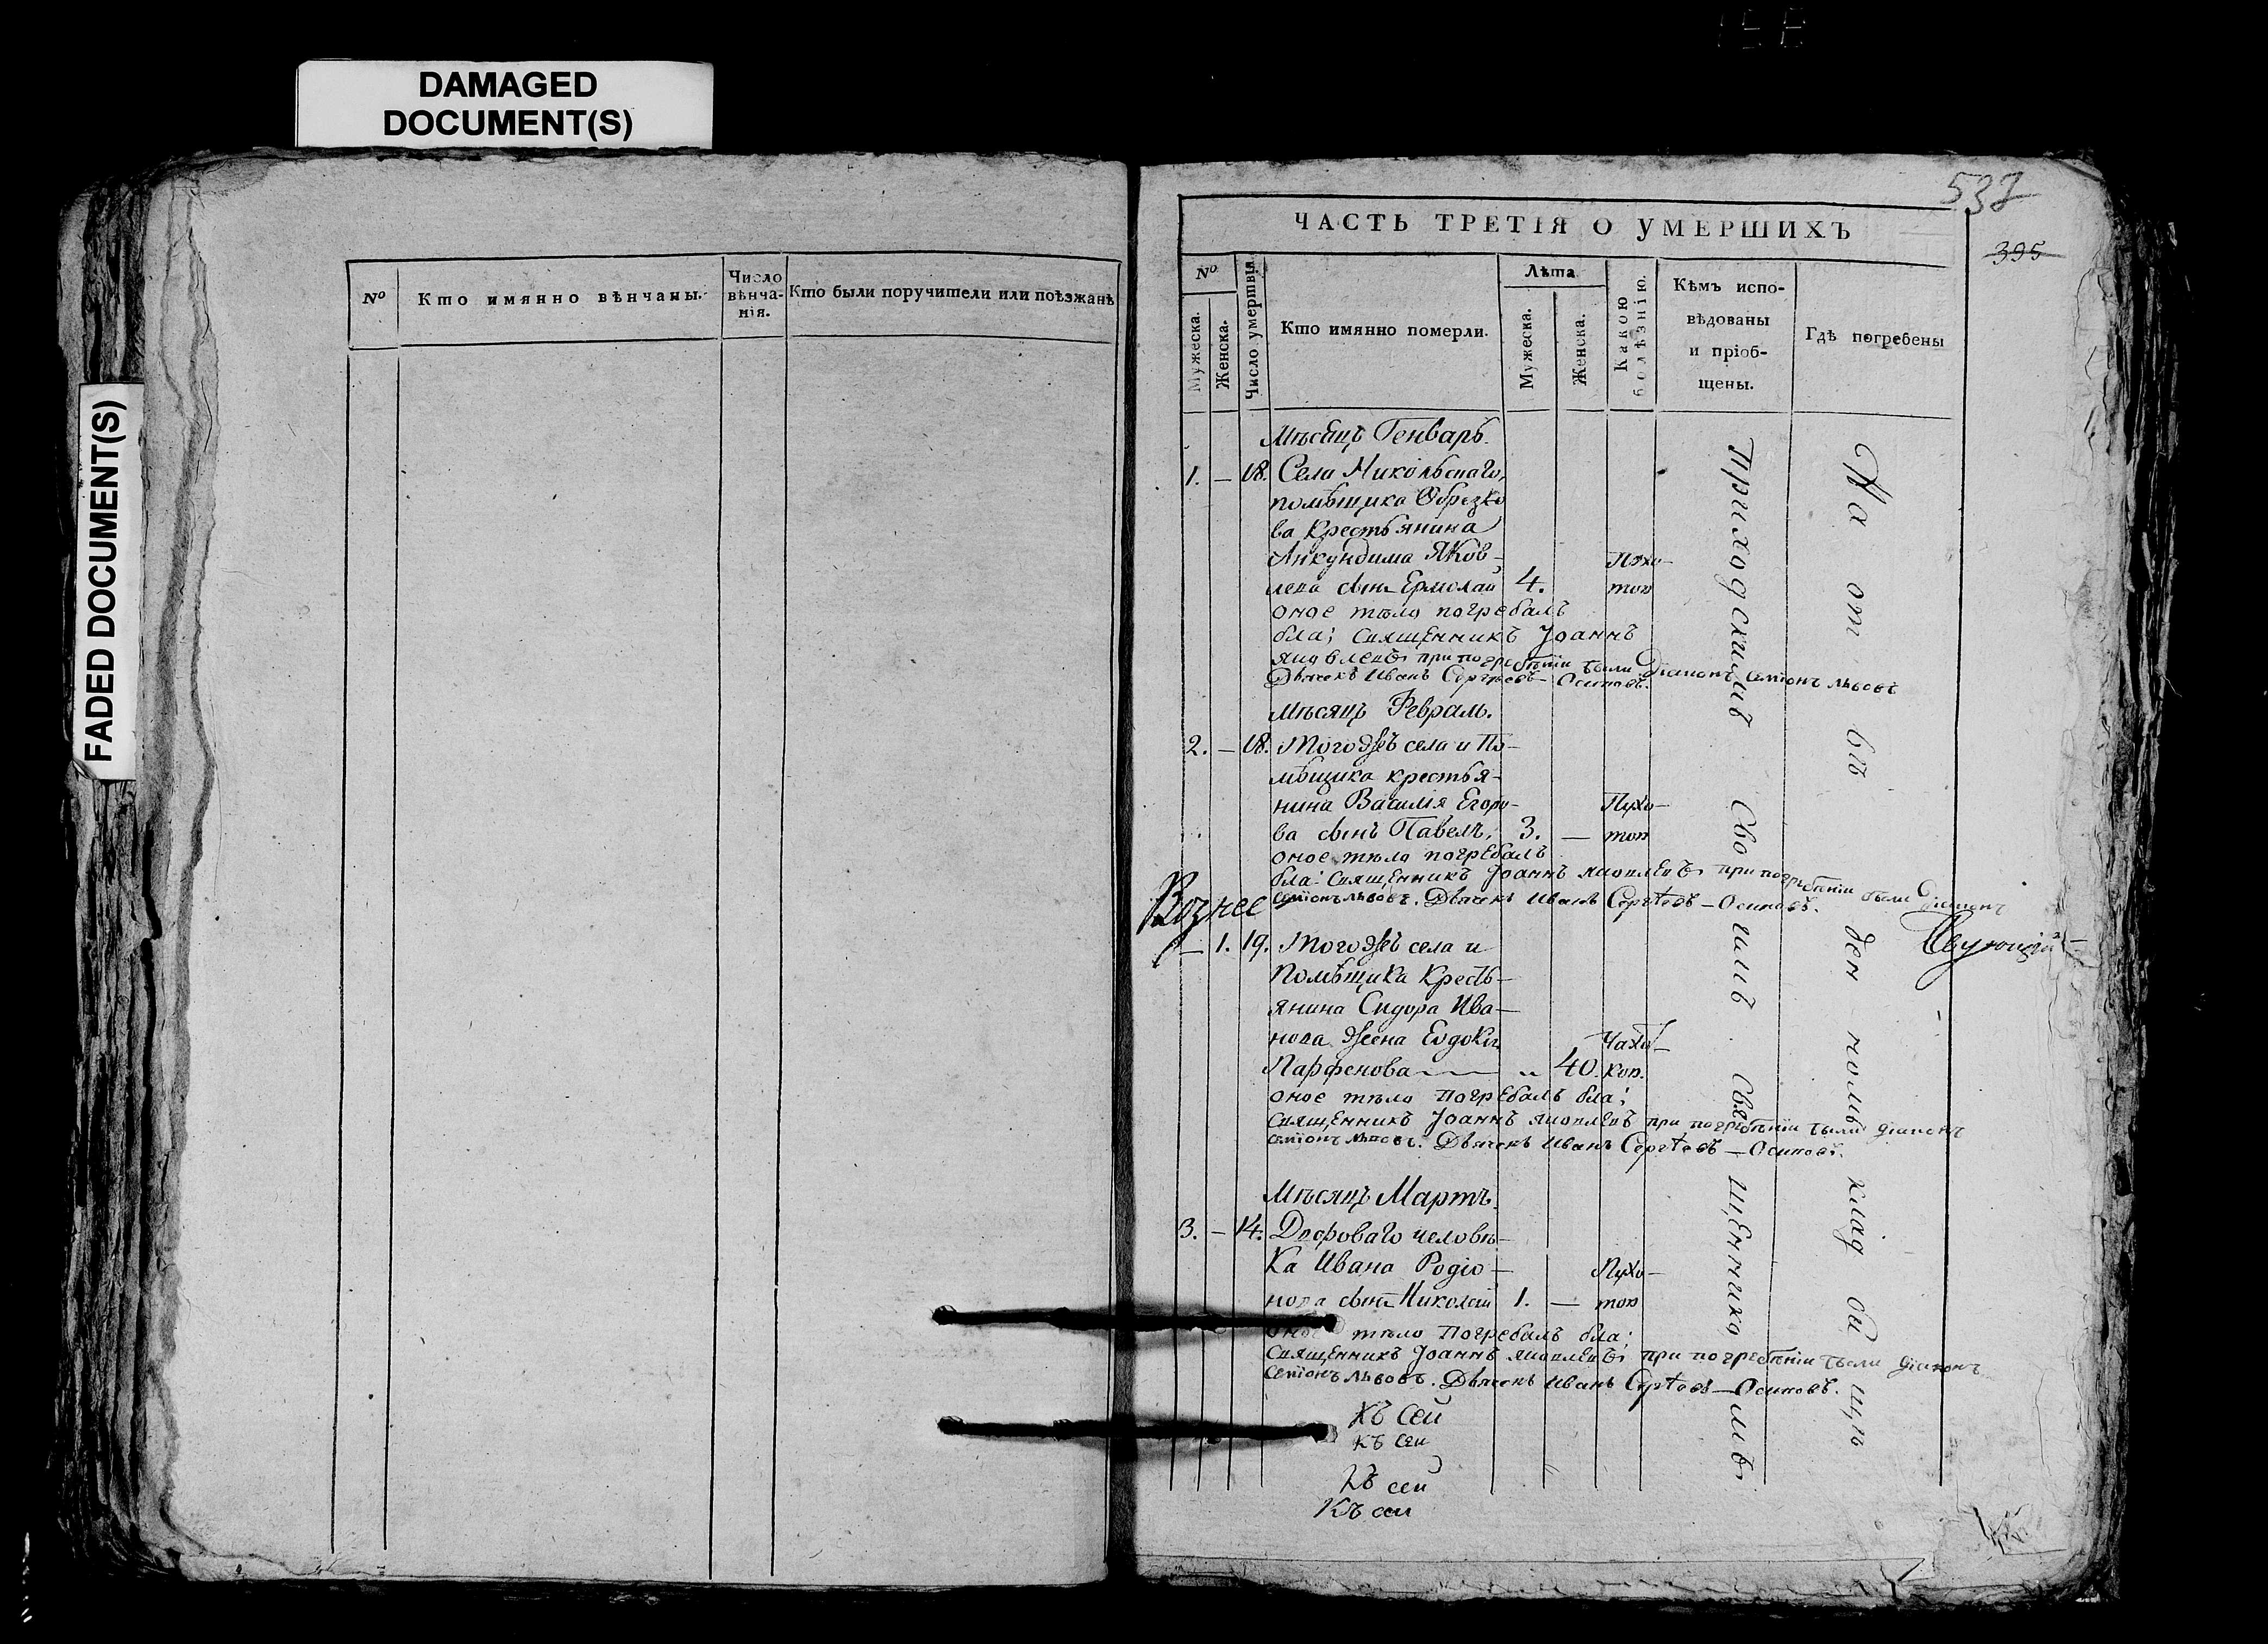 DAMAGED
DOCUMENT(S)
FADED DOCUMENT(S)
№
Кто имянно вѣнчаны.
Число
вѣнча-
нія.
Кто были поручители или поѣзжанѣ
537
395
ЧАСТЬ ТРЕТІЯ О УМЕРШИХЪ
№
Мужеска.
Женска.
Число умертвія
Кто имянно померли.
Лѣта
Мужеска.
Женска.
Какою
болѣзнію.
Кѣмъ испо-
вѣдованы
и пріоб-
щены.
Гдѣ погребены
Мѣсяцъ Генварь.
1. — 18. Села Никольскаго,
помѣщика Обрезко
ва Крестьянина
Анкундима Яков-
лева сынъ Ермолай 4.
тою
оное тѣло погребалъ
бла: священникъ Іоаннъ
яковлевъ при погребѣніи были діаконъ семіонъ львовъ
Дьячекъ Иванъ Сергѣевъ — Осиповъ.
Мѣсяцъ Февраль.
2. — 18. Тогожъ села и По-
мѣщика крестья-
нина Василія Егоро- Пухо-
ва сынъ Павелъ, 3. — тою
оное тѣло погребалъ
бла: священникъ Іоаннъ яковлевъ при погребѣніи были діаконъ
семіонъ львовъ. Дьячекъ Иванъ Сергѣевъ — Осиповъ.
Вознес
— 1. 19. Тогожъ села и
Помѣщика Кресть-
янина Сидора Ива-
нова жена Евдокія Чахо-
Парфенова 40. кою.
оное тѣло погребалъ бла:
священникъ Іоаннъ яковлевъ при погребѣніи были діаконъ
семіонъ львовъ. Дьячекъ Иванъ Сергѣевъ — Осиповъ.
Мѣсяцъ Мартъ.
3. — 14. Двороваго человѣ-
ка Ивана Родіо- Пухо-
нова сынъ Николай 1. — тою
оное тѣло Погребалъ бла:
священникъ Іоаннъ яковлевъ при погребѣніи были діаконъ
семіонъ львовъ. Дьячекъ Иванъ Сергѣевъ — Осиповъ.
Къ сей
къ сей
Къ сей
Къ сей
Приходскимъ Своимъ Священникомъ
На отведенномъ кладбищѣ